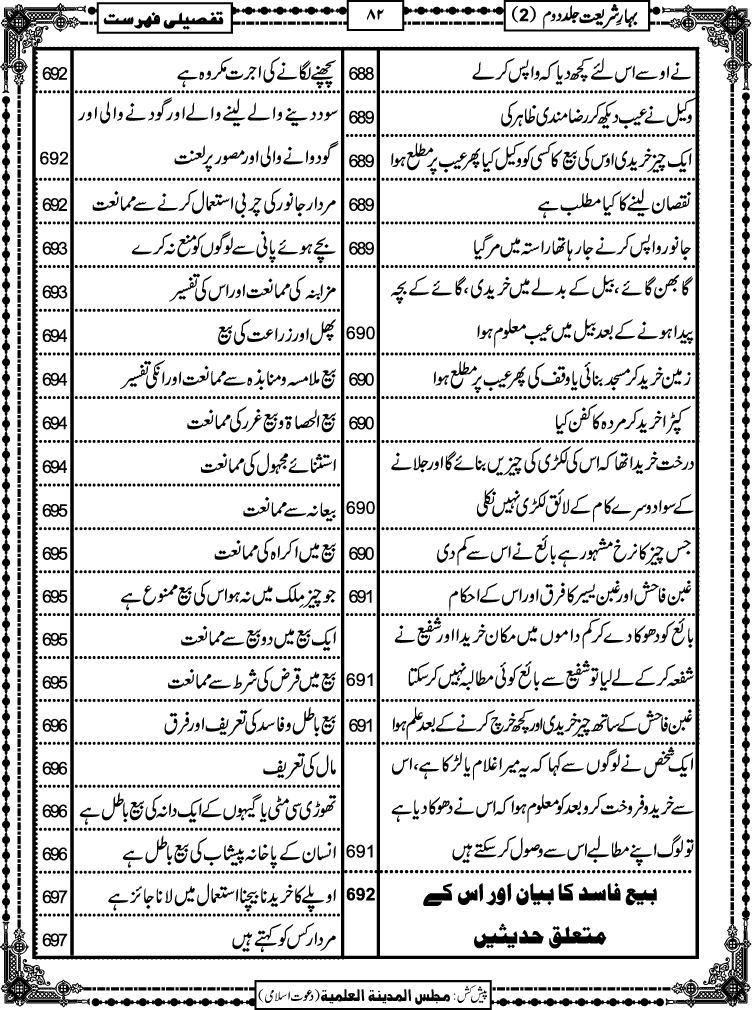 بہارِشریعت جلد دوم (2)
۸۲
تفصیلی فہرست
نے اوسے اس لئے کچھ دیا کہ واپس کرلے 688
وکیل نے عیب دیکھ کر رضا مندی ظاہر کی 689
ایک چیز خریدی اوس کی بیع کا کسی کو وکیل کیا پھر عیب پر مطلع ہوا 689
نقصان لینے کا کیا مطلب ہے 689
جانور واپس کرنے جا رہا تھا راستہ میں مر گیا 689
گابھن گائے، بیل کے بدلے میں خریدی، گائے کے بچہ
پیدا ہونے کے بعد بیل میں عیب معلوم ہوا 690
زمین خرید کر مسجد بنائی یا وقف کی پھر عیب پر مطلع ہوا 690
کپڑا خرید کر مردہ کا کفن کیا 690
درخت خریدا تھا کہ اس کی لکڑی کی چیزیں بنائے گا اور جلانے
کے سوا دوسرے کام کے لائق لکڑی نہیں نکلی 690
جس چیز کا نرخ مشہور ہے بائع نے اس سے کم دی 690
غبن فاحش اور غبن یسیر کا فرق اور اس کے احکام 691
بائع کو دھوکا دے کر کم داموں میں مکان خریدا اور شفیع نے
شفعہ کر کے لے لیا تو شفیع سے بائع کوئی مطالبہ نہیں کرسکتا 691
غبن فاحش کے ساتھ چیز خریدی اور کچھ خرچ کرنے کے بعد علم ہوا 691
ایک شخص نے لوگوں سے کہا کہ یہ میرا غلام یا لڑکا ہے، اس
سے خرید و فروخت کرو بعد کو معلوم ہوا کہ اس نے دھوکا دیا ہے
تو لوگ اپنے مطالبے اس سے وصول کر سکتے ہیں 691
بیع فاسد کا بیان اور اس کے 692
متعلق حدیثیں
پچھنے لگانے کی اجرت مکروہ ہے 692
سود دینے والے لینے والے اور گودنے والی اور
گودوانے والی اور مصور پر لعنت 692
مردار جانور کی چربی استعمال کرنے سے ممانعت 692
بچے ہوئے پانی سے لوگوں کو منع نہ کرے 693
مزابنہ کی ممانعت اور اس کی تفسیر 693
پھل اور زراعت کی بیع 694
بیع ملامسہ و منابذہ سے ممانعت اور انکی تفسیر 694
بیع الحصاۃ و بیع غرر کی ممانعت 694
استثنائے مجہول کی ممانعت 694
بیعانہ سے ممانعت 695
بیع میں اکراہ کی ممانعت 695
جو چیز مِلک میں نہ ہو اس کی بیع ممنوع ہے 695
ایک بیع میں دو بیع سے ممانعت 695
بیع میں قرض کی شرط سے ممانعت 695
بیع باطل و فاسد کی تعریف اور فرق 696
مال کی تعریف 696
تھوڑی سی مٹی یا گیہوں کے ایک دانہ کی بیع باطل ہے 696
انسان کے پاخانہ پیشاب کی بیع باطل ہے 696
اوپلے کا خریدنا بیچنا استعمال میں لانا جائز ہے 697
مردار کس کو کہتے ہیں 697
پیش کش: مجلس المدینۃ العلمیۃ (دعوت اسلامی)